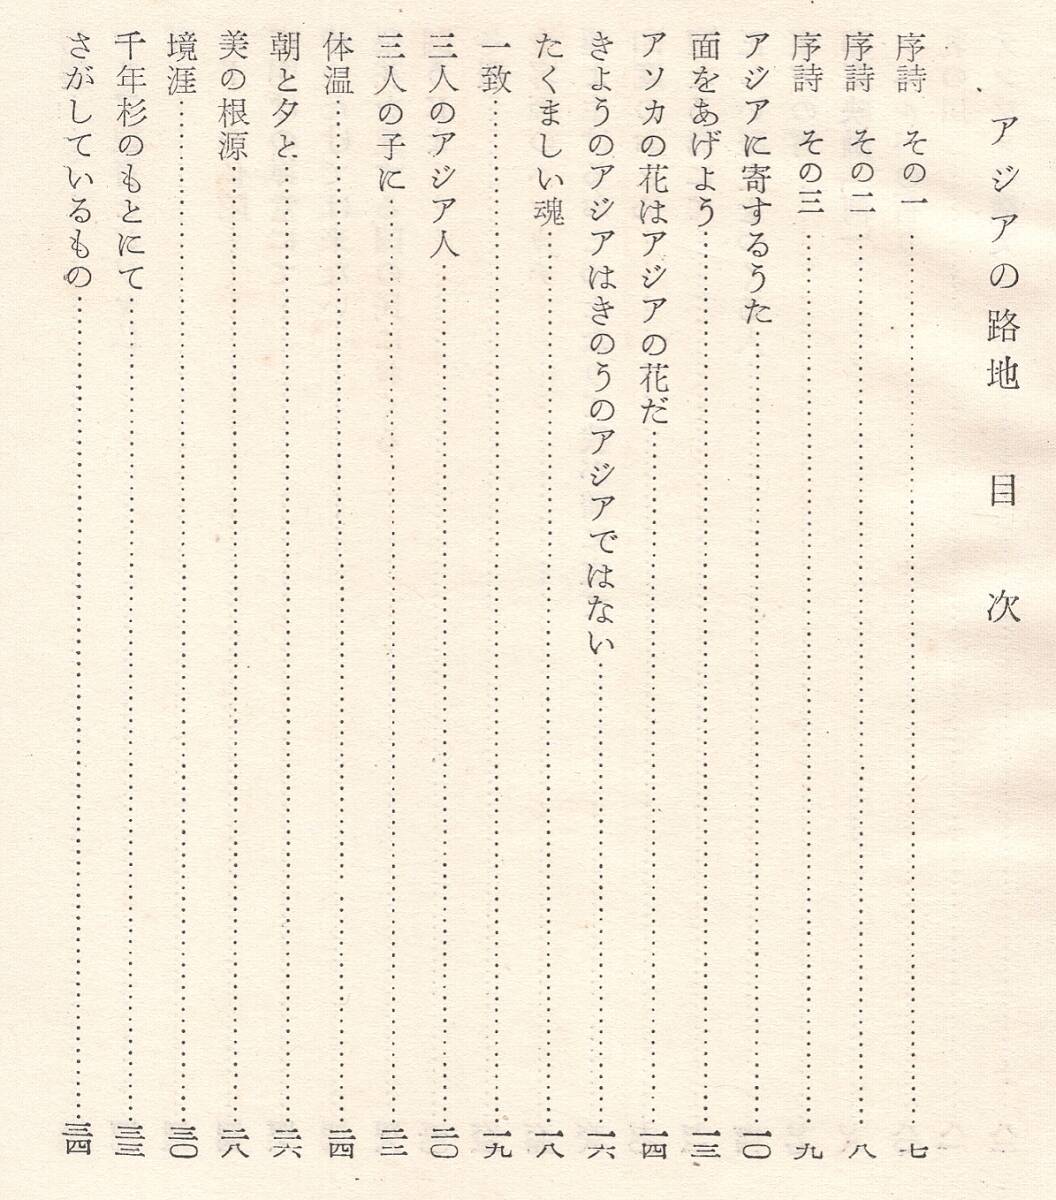 アジアの路地　目次
序詩　その一…………七
序詩　その二…………八
序詩　その三…………九
アジアに寄するうた…………一〇
面をあげよう…………一三
アソカの花はアジアの花だ…………一四
きようのアジアはきのうのアジアではない…………一六
たくましい魂…………一八
一致…………一九
三人のアジア人…………二〇
三人の子に…………二二
体温…………二四
朝と夕と…………二六
美の根源…………二八
境涯…………三〇
千年杉のもとにて…………三三
さがしているもの…………三四